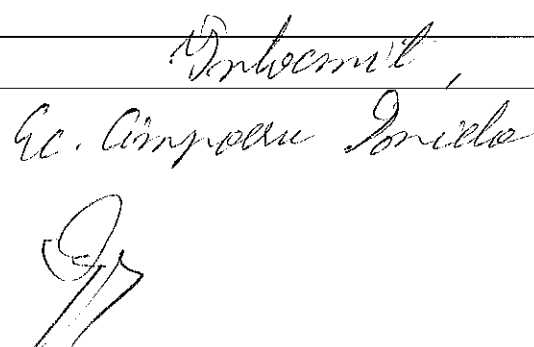 Întocmit,
Ec. Cimpoeru Ionela